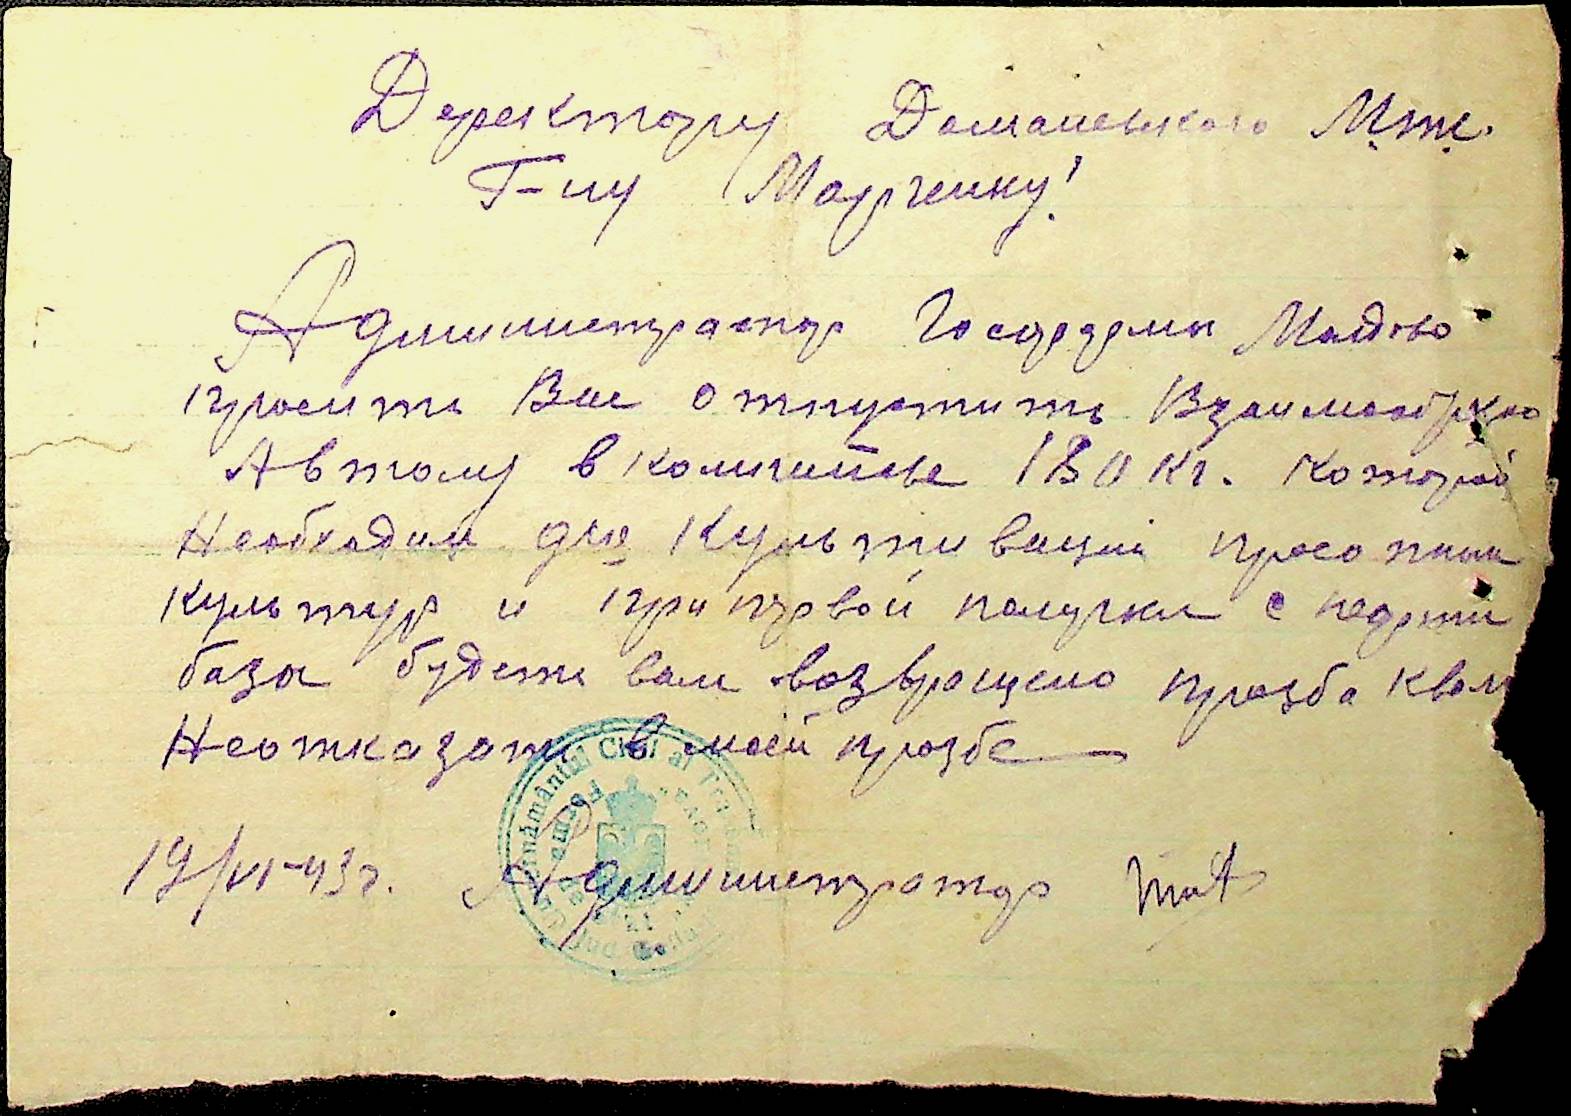 Деректору Доманевского М.т.с.
Г-ну Марченку!
Администратор Госфермы
просить Вас отпустить Взаимообрзно
Автолу в количистве 180 кг. который
Необходим для Культивации пропашных
культур и при первой получки с нефти
базы будеть вам возвращено прозба квам
Неотказать в моей прозбе
19/VI-43 г. Администратор
Guvernământul Civil al Tra
Ferma de